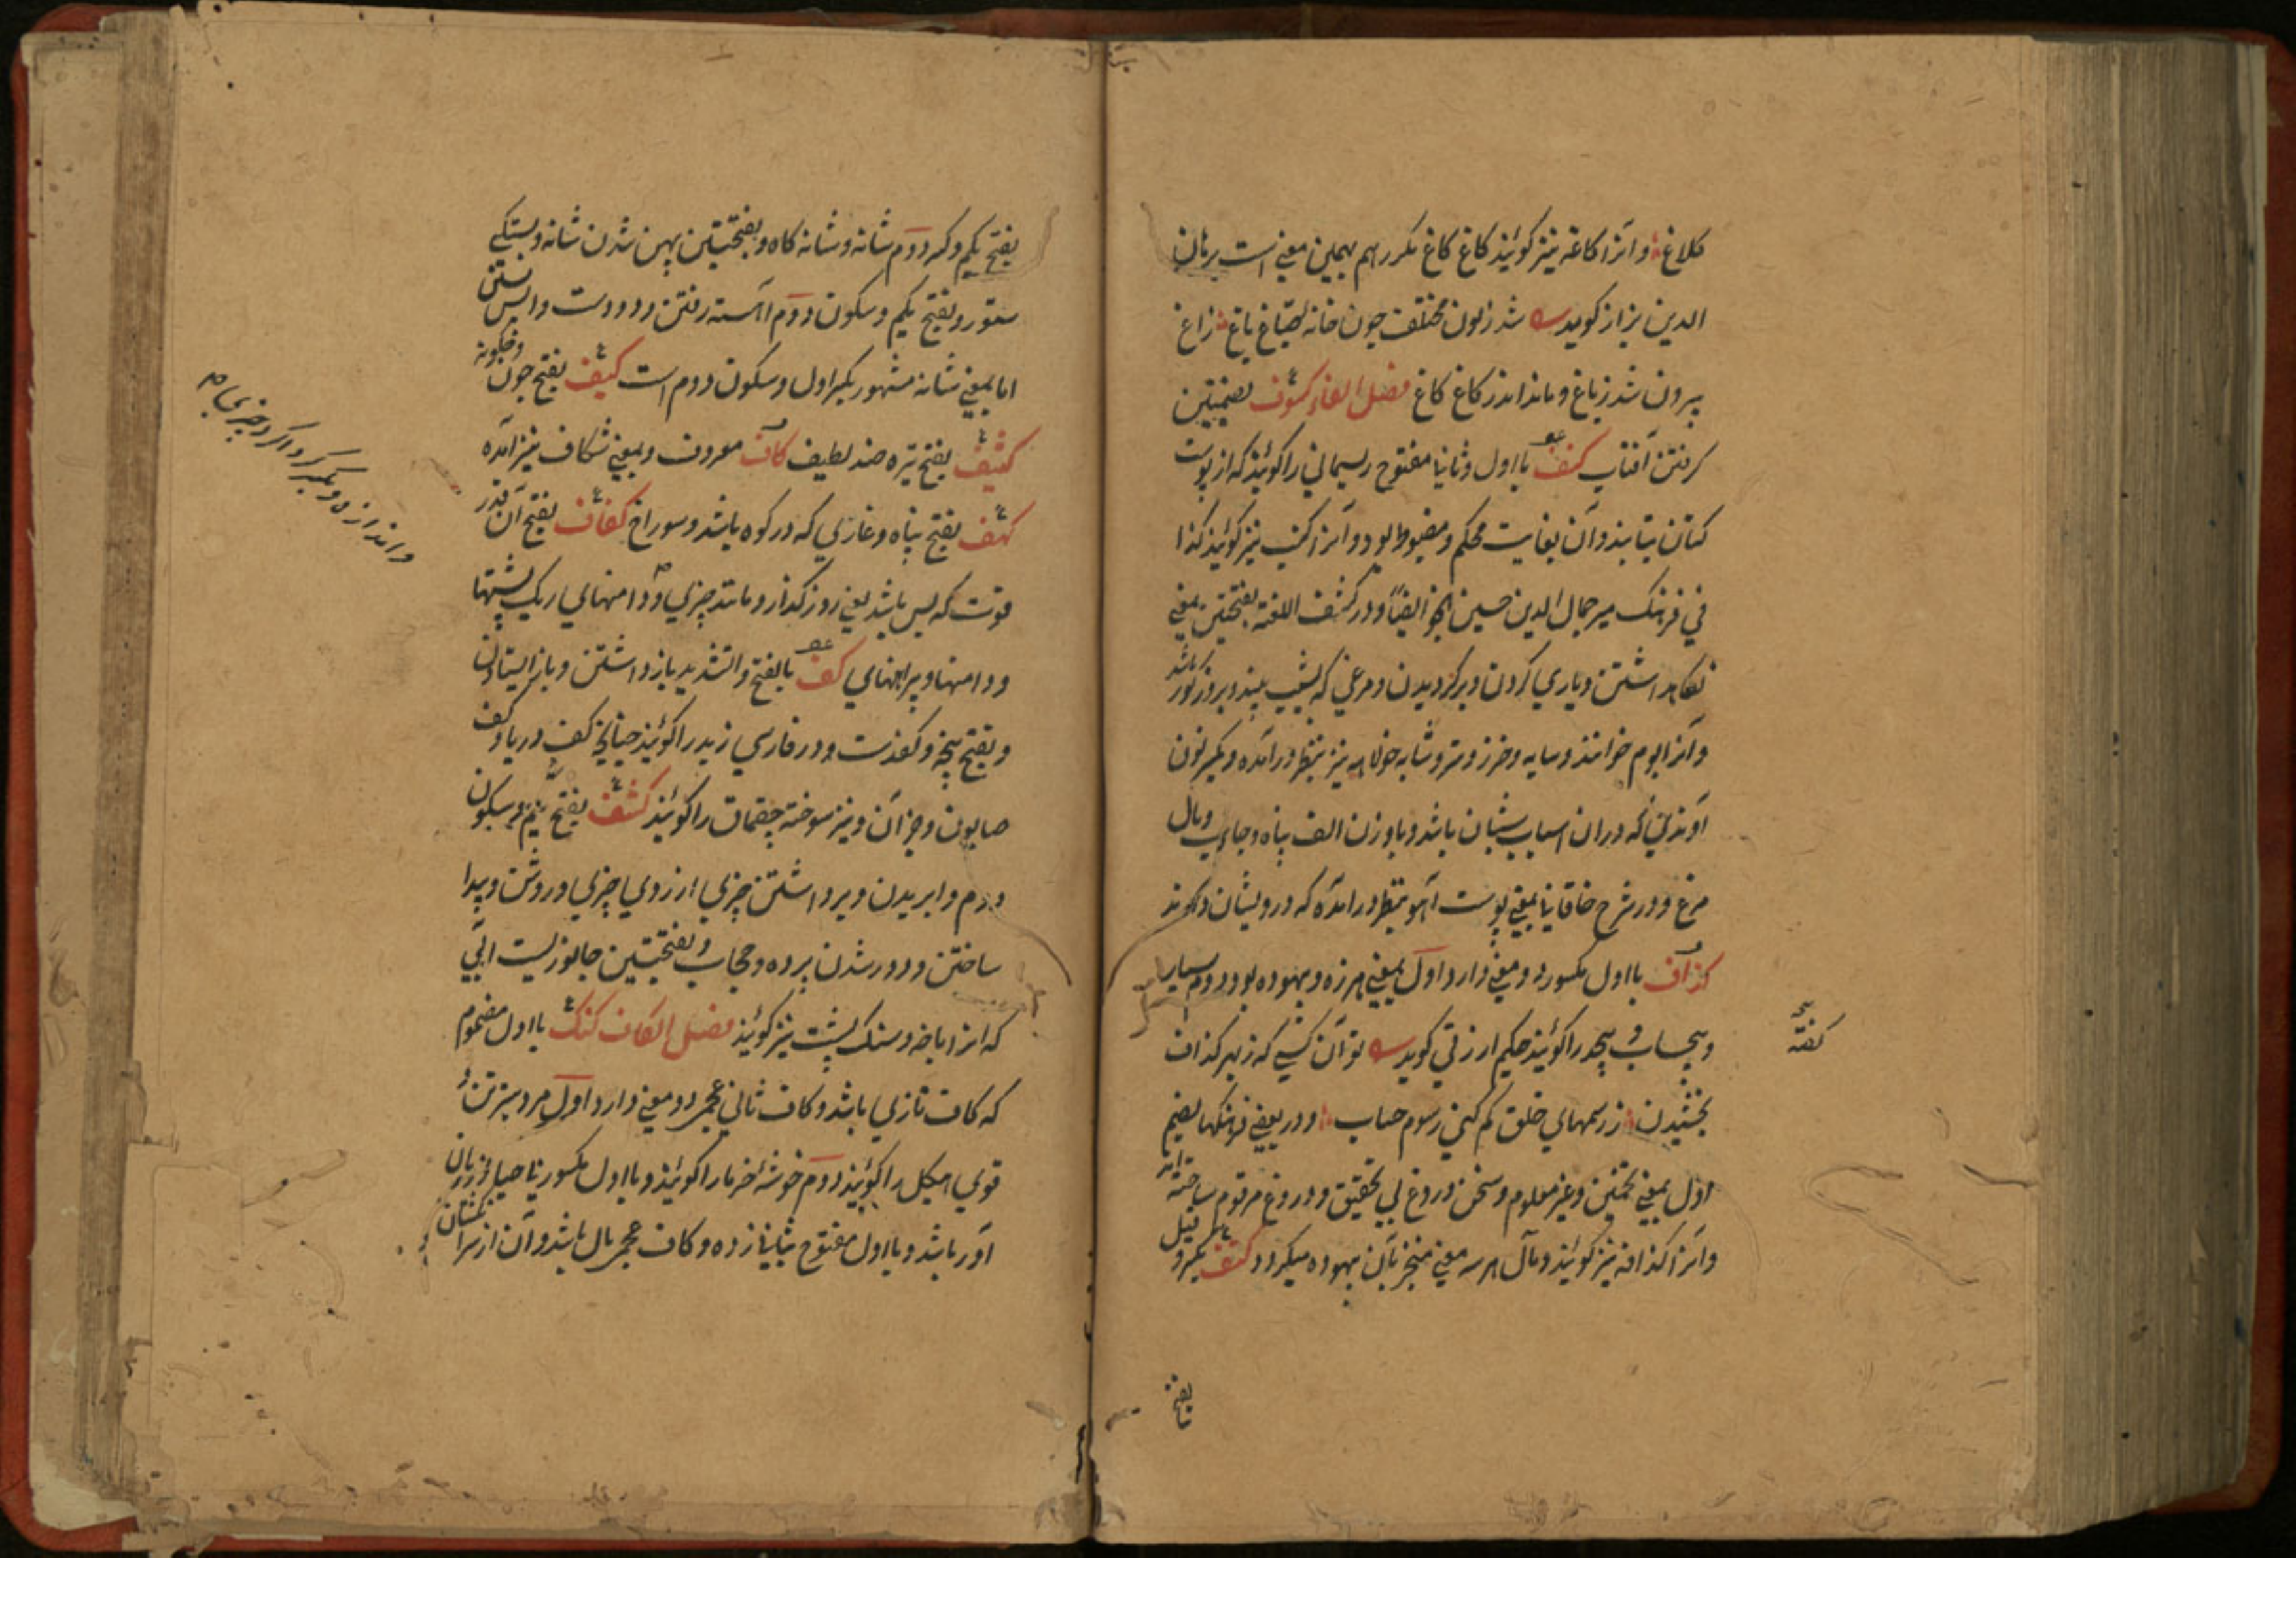 کلاغ و انرا کاغه نیز کوئیند کاغ کاغ مکرر هم بهمین معنی است برهان
الدین بزاز کوید شد ز لون مختلف چون خانه صباغ باغ زاغ
بیرون شد ز باغ و ماند اندر کاغ کاغ فصل الفاء کسوف بضمیتین
کرفتن آفتاب کنف بااول و ثانیا مفتوح ریسمانی را کوئیند که از پوست
کتان بتابند و آن بغایت محکم و مضبوط بود و آنرا کنب نیز کوئیند کذا
في فرهنک میر جمال الدین حسین انجو ایضاً و در کشف اللغته بفتحتین بمعنی
نکاهداشتن و یاری کردن و برکردیدن و مرغی که بشب بیند و بروز کور باشد
و آنرا بوم خوانند و سایه و خرز و ستر و نیز بنظر درامده و بکسر نون
آوندیکه دران اسباب شبان باشد و باوزن الف پناه و جای و بال
مرغ و در شرح خاقانیا بمعنی پوست آهو بنظر درامده که درویشان دارند
کذاف بااول مکسور دو معنی دارد اول بمعنی هرزه و بیهوده بود دوم بسیار
و بیحساب و بیحد را کوئیند حکیم ارزقی کوید تو آن کسی که ز بهر کذاف
بخشیدن ز رسمهای خلق کم کنی رسوم حساب و در بعضی فرهنکها بضم
اول بمعنی تخمین و غیر معلوم و سخن دروغ بی تحقیق و دروغ مرقوم ساخته اند
و آنرا کذافه نیز کوئیند و مآل هر سه معنی منجر بآن بیهوده میکردد کتف بکسر و قیل
کفته
بفتح
بفتح یکم و کسر دوم شانه و شانه کاه و بفتحیتین پهن شدن شانه و بستکی
ستور و بفتح یکم و سکون دوم آهسته رفتن و دو دست واپس بستن
اما بمعنی شانه مشهور بکسر اول و سکون دوم است کیف بفتح چون و چکونه
کثیف بفتح تیره ضد لطیف کاف معروف و بمعنی شکاف نیز آمده
کهف بفتح پناه و غاری که در کوه باشد و سوراخ کفاف بفتح آن قدر
قوت که بس باشد یعنی روز کذار و مانند چیزی و دامنهای ریک پشتها
و دامنها و پیراهنهای کف بالفتح والتشدید باز داشتن و باز ایستادن
و بفتح پنجه و کف دست و در فارسی زبد را کوئیند چنانچه کف دریا و کف
صابون و جز آن و نیز سوخته چقماق را کوئیند کشف بفتح یکم و سکون
دوم وا بریدن و برداشتن چیزی از روی چیزی و روشن و پیدا
ساختن و دور شدن پرده و حجاب و بفتحتین جانوریست آبی
که انرا باخه و سنک پشت نیز کوئیند فصل الکاف کنک بااول مضموم
که کاف تازی باشد و کاف ثانی عجمی دو معنی دارد اول مرد سترتن و
قوی هیکل را کوئیند دوم خوشهٔ خرما را کوئیند و بااول مکسور بی حیا و زبان
آور باشد و بااول مفتوح بثانی زده و کاف عجمی بال باشد و آن از سر انکشتان
و اندازه و بکسر کرداکرد چیزی